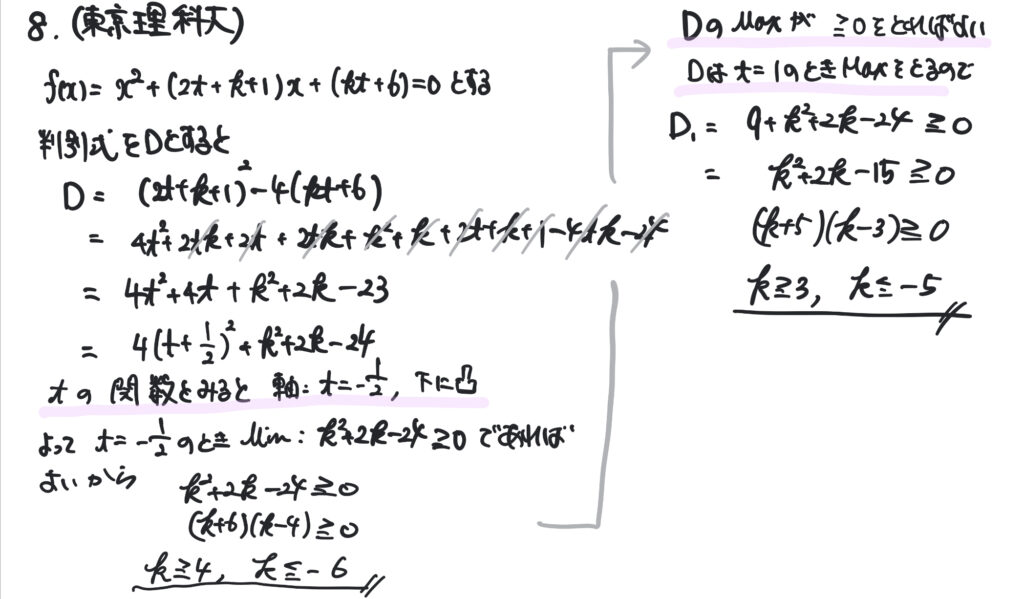 8. (東京理科大)
f(x) = x²+(2t+k+1)x+(kt+6)=0 とする
判別式をDとすると
D = (2t+k+1)²-4(kt+6)
= 4t²+2tk+2t+2tk+k²+k+2t+k+1-4tk-24
= 4t²+4t+k²+2k-23
= 4(t+1/2)²+k²+2k-24
tの関数とみると 軸:t=-1/2, 下に凸
よって t=-1/2のとき Min: k²+2k-24≧0 であれば
よいから
k²+2k-24≧0
(k+6)(k-4)≧0
k≧4, k≦-6
DのMaxが ≧0をとればよい
Dは t=1のときMaxをとるので
D₁ = 9+k²+2k-24≧0
= k²+2k-15≧0
(k+5)(k-3)≧0
k≧3, k≦-5